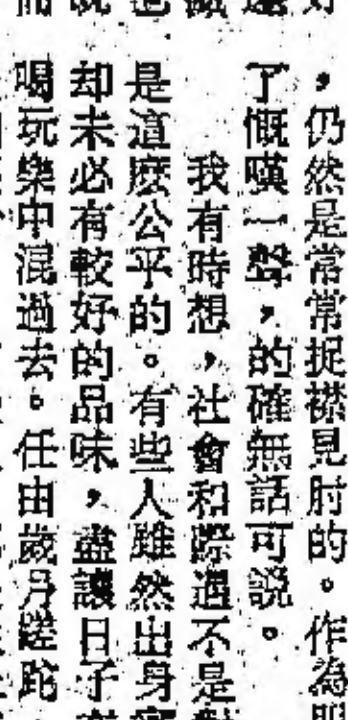 ，仍然是常常捉襟見肘的。作為
了慨嘆一聲，的確無話可説。
我有時想，社會和際遇不是
是這麽公平的。有些人雖然出身
却未必有較好的品味，盡讓日子
喝玩樂中混過去。任由歲月蹉跎